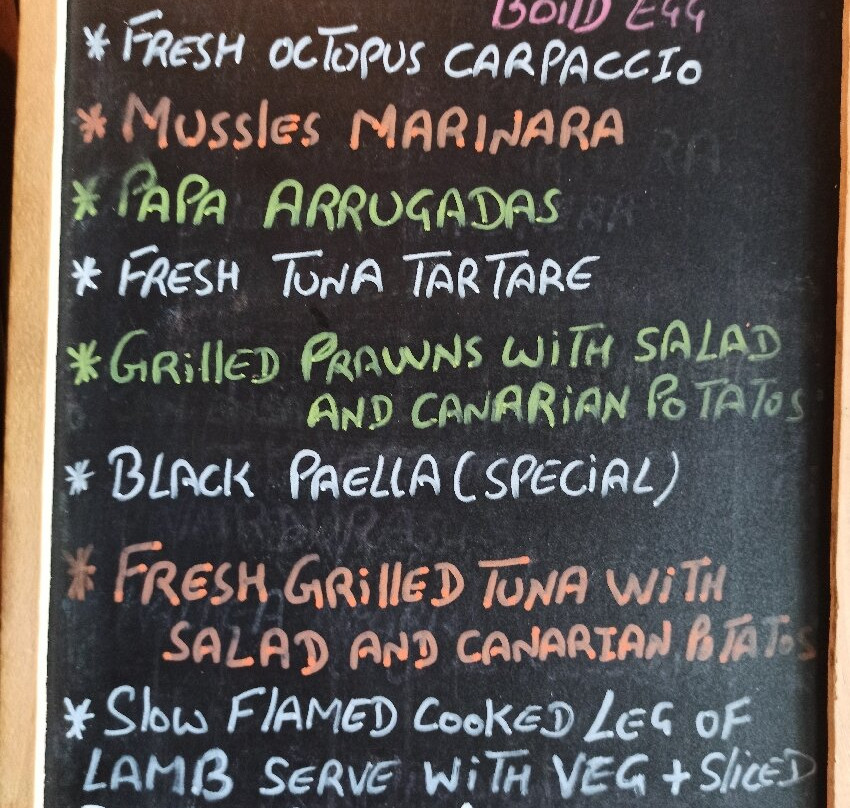 BOILD EGG
* FRESH OCTOPUS CARPACCIO
* MUSSlES MARINARA
* PAPA ARRUGADAS
* FRESH TUNA TARTARE
* GRillED PRAWNS WiTH SALAD
AND CANARiAN POTATOS
* BLACK PAELLA (SPECiAL)
* FRESH GRillED TUNA WiTH
SALAD AND CANARIAN POTATOS
* Slow FlAMED COOKED LEG OF
LAMB SERVE WiTH VEG + SliCED